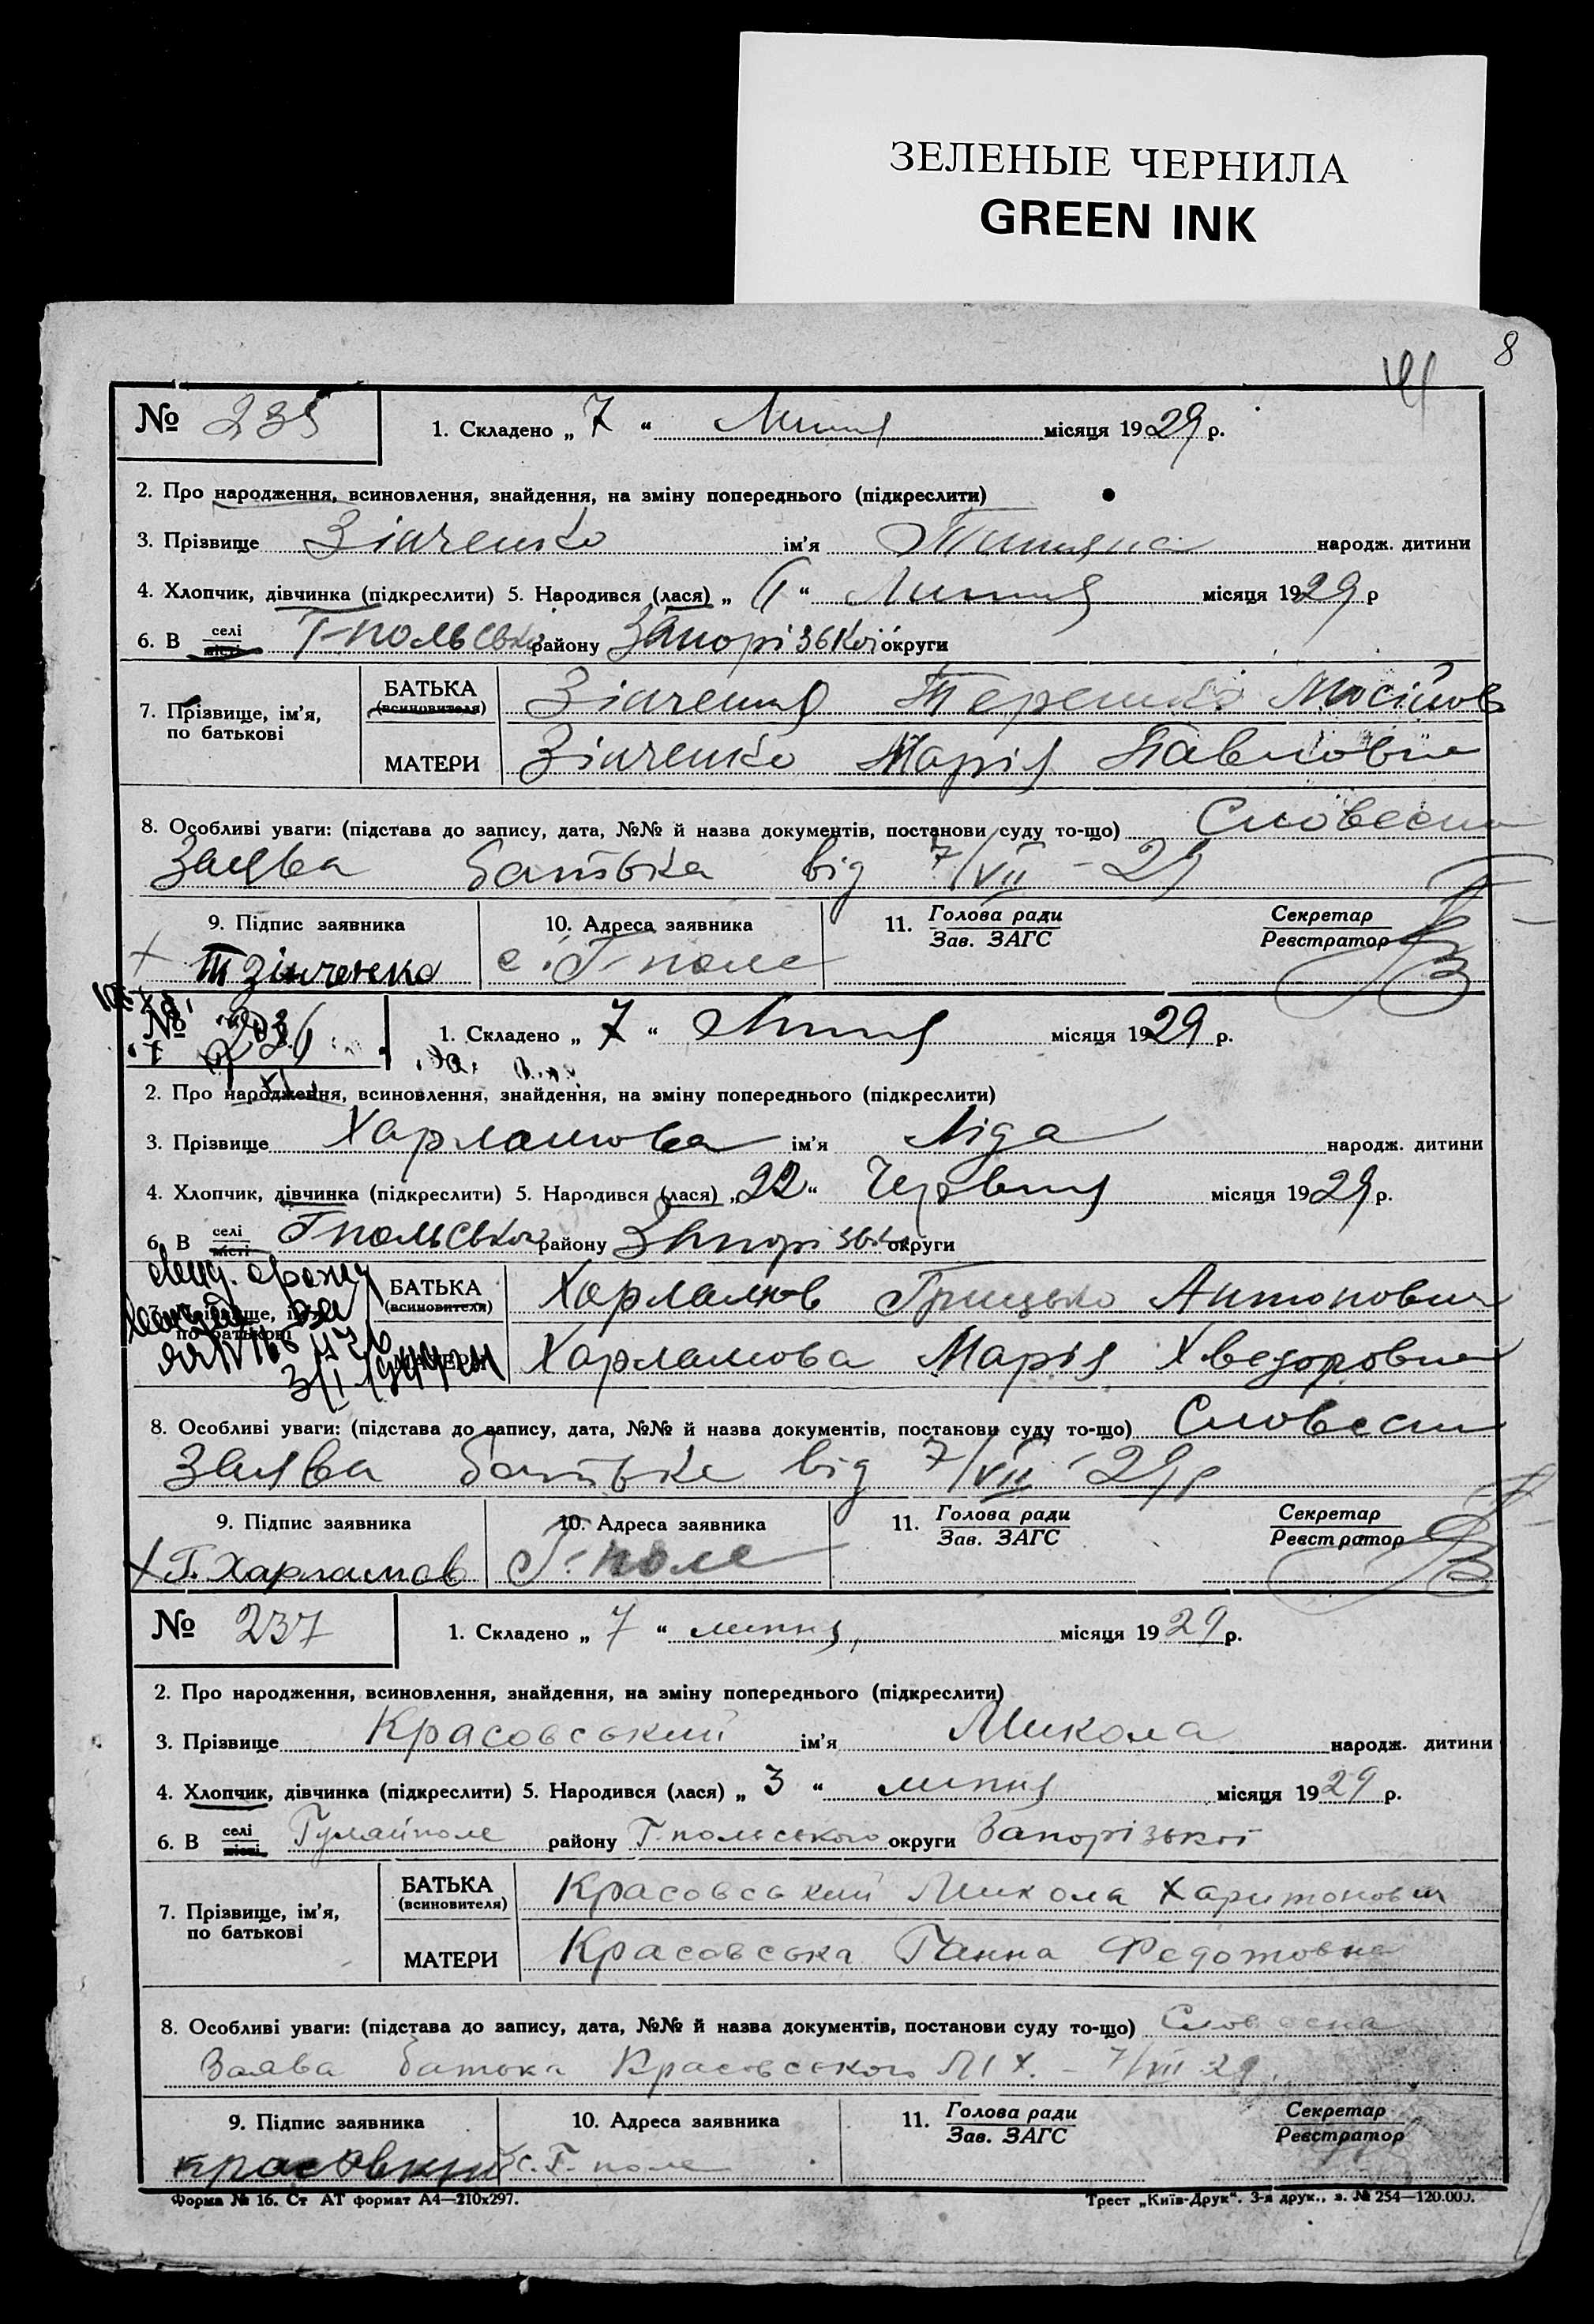 ЗЕЛЕНЫЕ ЧЕРНИЛА
GREEN INK
8
№ 235 1. Складено „ 7 “ Липня місяця 1929 р.
2. Про народження, всиновлення, знайдення, на зміну попереднього (підкреслити)
3. Прізвище Зінченко ім’я Тетяна народж. дитини
4. Хлопчик, дівчинка (підкреслити) 5. Народився (лася) „ “ Липня місяця 1929 р
6. В селі місті Г-польсько району Запорізької округи
7. Прізвище, ім’я, по батькові
БАТЬКА (всиновителя) Зінченко Терешко Мосійов
МАТЕРИ Зінченко Марія Павловна
8. Особливі уваги: (підстава до запису, дата, №№ й назва документів, постанови суду то-що) Словесна
Заява батька від 7/VII – 29
9. Підпис заявника 10. Адреса заявника 11. Голова ради Зав. ЗАГС Секретар Реєстратор
Т Зінченко с. Г-поле
№ 236 1. Складено „ 7 “ Липня місяця 1929 р.
2. Про народження, всиновлення, знайдення, на зміну попереднього (підкреслити)
3. Прізвище Харламова ім’я Ліда народж. дитини
4. Хлопчик, дівчинка (підкреслити) 5. Народився (лася) „ 22 “ Червня місяця 1929 р.
6. В селі місті Гпольсько району Запорізьк округи
7. Прізвище, ім’я, по батькові
БАТЬКА (всиновителя) Харламов Грицько Антонович
МАТЕРИ Харламова Марія Хведоровна
8. Особливі уваги: (підстава до запису, дата, №№ й назва документів, постанови суду то-що) Словесна
Заява батька від 7/VII 29р
9. Підпис заявника 10. Адреса заявника 11. Голова ради Зав. ЗАГС Секретар Реєстратор
Г. Харламов Г-поле
№ 237 1. Складено „ 7 “ липня, місяця 1929 р.
2. Про народження, всиновлення, знайдення, на зміну попереднього (підкреслити)
3. Прізвище Красовський ім’я Микола народж. дитини
4. Хлопчик, дівчинка (підкреслити) 5. Народився (лася) „ 3 “ липня місяця 1929 р.
6. В селі місті Гуляйполе району Г.польського округи Запорізької
7. Прізвище, ім’я, по батькові
БАТЬКА (всиновителя) Красовський Микола Харитонович
МАТЕРИ Красовська Ганна Федотовна
8. Особливі уваги: (підстава до запису, дата, №№ й назва документів, постанови суду то-що) Словесна
Заява батька Красовського М Х. – 7/VII 29.
9. Підпис заявника 10. Адреса заявника 11. Голова ради Зав. ЗАГС Секретар Реєстратор
с. Г-поле
Форма № 16. Ст АТ формат А4—210х297. Трест „Київ-Друк“. 3-я друк., з. № 254—120.000.